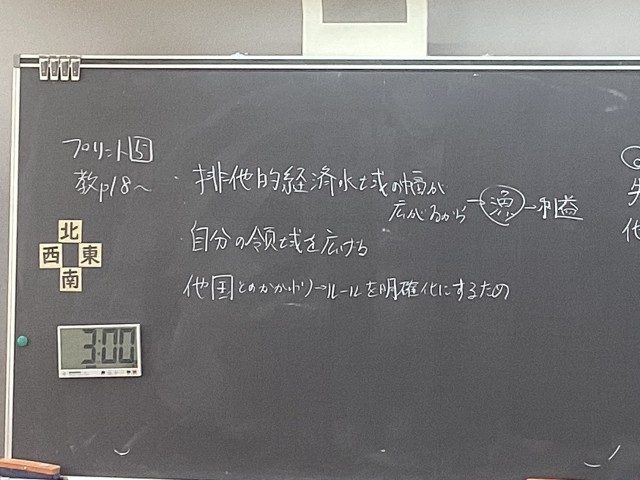 プリント5
教p18~
・排他的経済水域の幅が
広がるから→漁→利益
・自分の領域を広げる
他国とのかかわり→ルールを明確化にするため
北
西 東
南
3:00